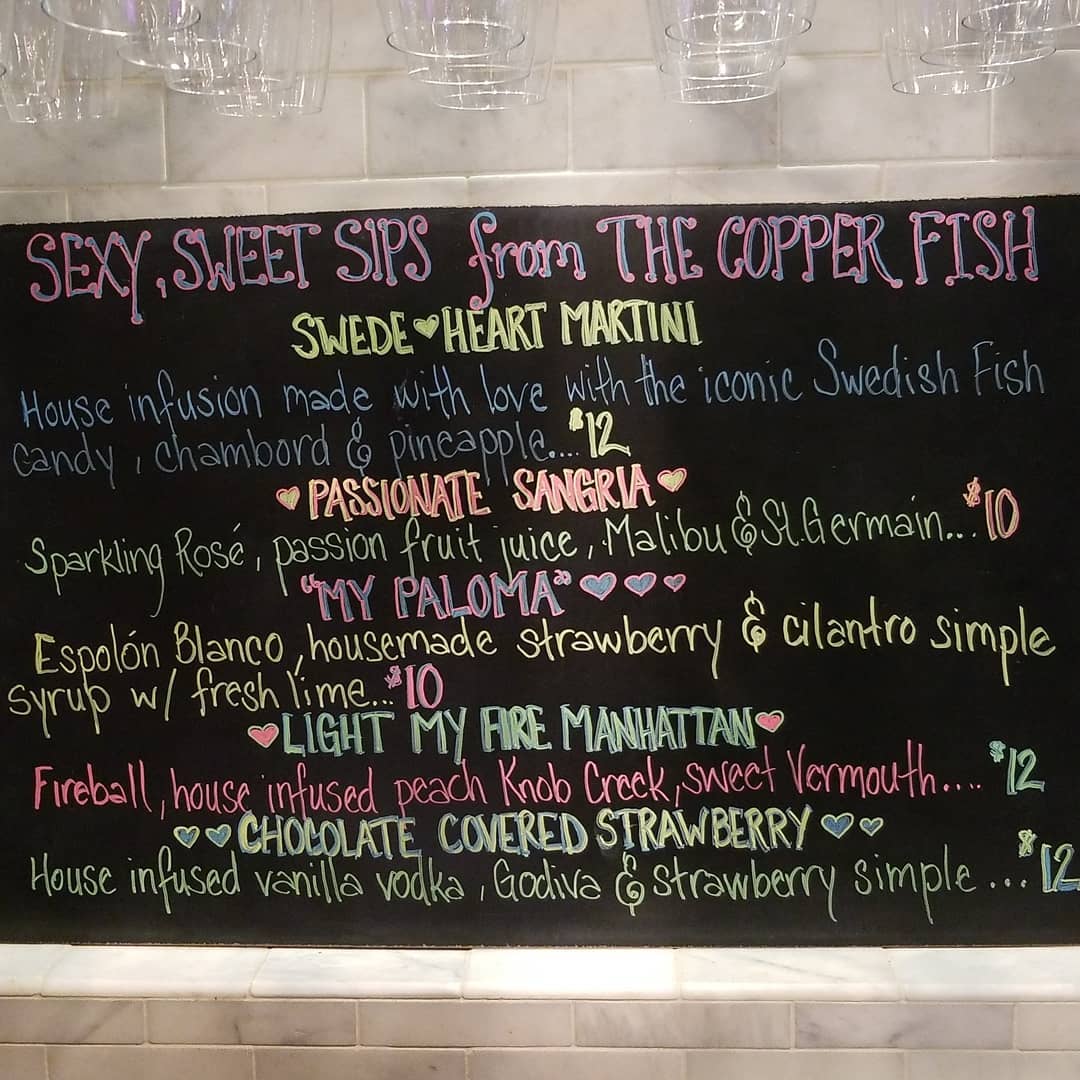 SEXY, SWEET SIPS from THE COPPER FISH
SWEDE ♥ HEART MARTINI
House infusion made with love with the iconic Swedish Fish
Candy, chambord & pineapple.... $12
♥ PASSIONATE SANGRIA ♥
Sparkling Rosé, passion fruit juice, Malibu & St. Germain... $10
"MY PALOMA" ♥ ♥ ♥
Espolón Blanco, housemade strawberry & cilantro simple
syrup w/ fresh lime... $10
♥ LIGHT MY FIRE MANHATTAN ♥
Fireball, house infused peach Knob Creek, sweet Vermouth.... $12
♥ ♥ CHOCOLATE COVERED STRAWBERRY ♥ ♥
House infused vanilla vodka, Godiva & strawberry simple ... $12